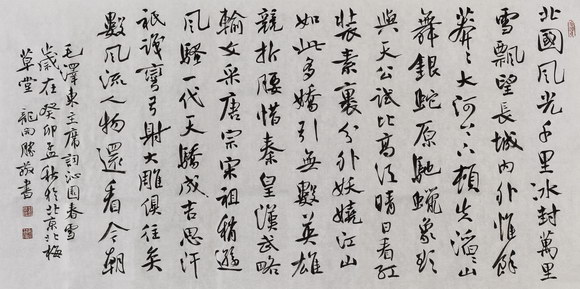 北國風光千里冰封萬里
雪飄望長城內外惟餘
莽〻大河上下頓失滔〻山
舞銀蛇原馳蠟象欲
與天公試比高須晴日看紅
裝素裹分外妖嬈江山
如此多嬌引無數英雄
競折腰惜秦皇漢武略
輸文采唐宗宋祖稍遜
風騷一代天驕成吉思汗
祇識彎弓射大雕俱往矣
數風流人物還看今朝
毛澤東主席詞沁園春雪
歲在癸卯孟秋於北京北梅
草堂 龍向勝敬書